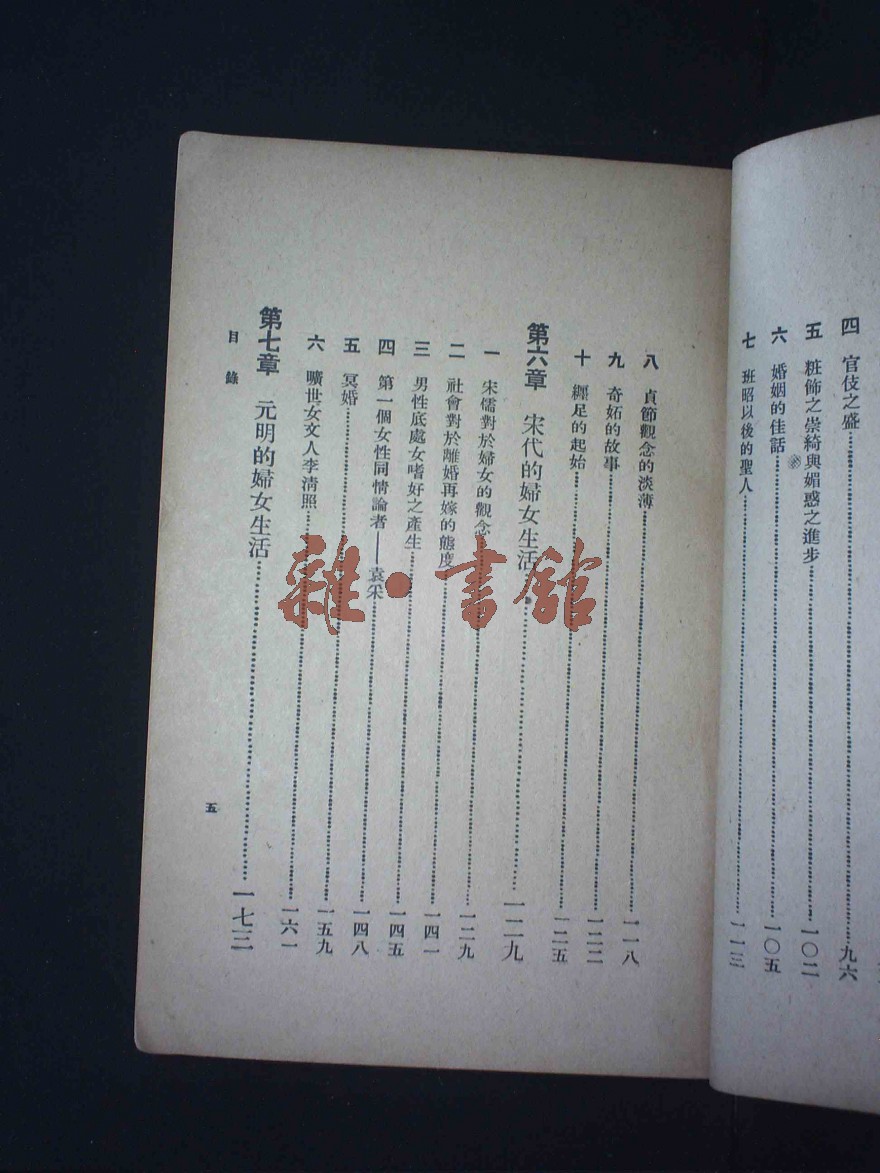 四 官伎之盛……九六
五 粧飾之崇綺與媚惑之進步……一〇二
六 婚姻的佳話……一〇五
七 班昭以後的聖人……一一三
八 貞節觀念的淡薄……一一八
九 奇妬的故事……一二二
十 纏足的起始……一二五
第六章 宋代的婦女生活……一二九
一 宋儒對於婦女的觀念……一二九
二 社會對於離婚再嫁的態度……一四一
三 男性底處女嗜好之產生……一四五
四 第一個女性同情論者——袁采……一四八
五 冥婚……一五九
六 曠世女文人李清照……一六一
第七章 元明的婦女生活……一七三
目錄
五
雜·書館